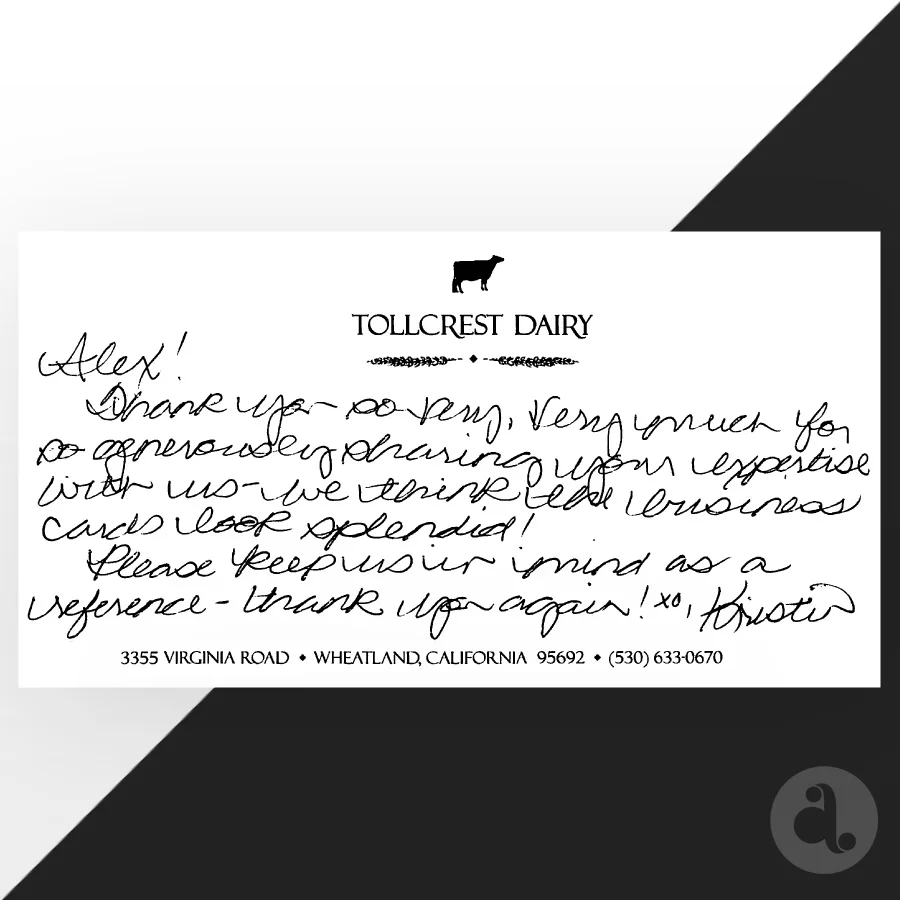 TOLLCREST DAIRY
Alex!
Thank you so very, very much for
so generously sharing your expertise
with us - we think the business
cards look splendid!
Please keep us in mind as a
reference - thank you again! xo, Kristin
3355 VIRGINIA ROAD ◆ WHEATLAND, CALIFORNIA 95692 ◆ (530) 633-0670
a.